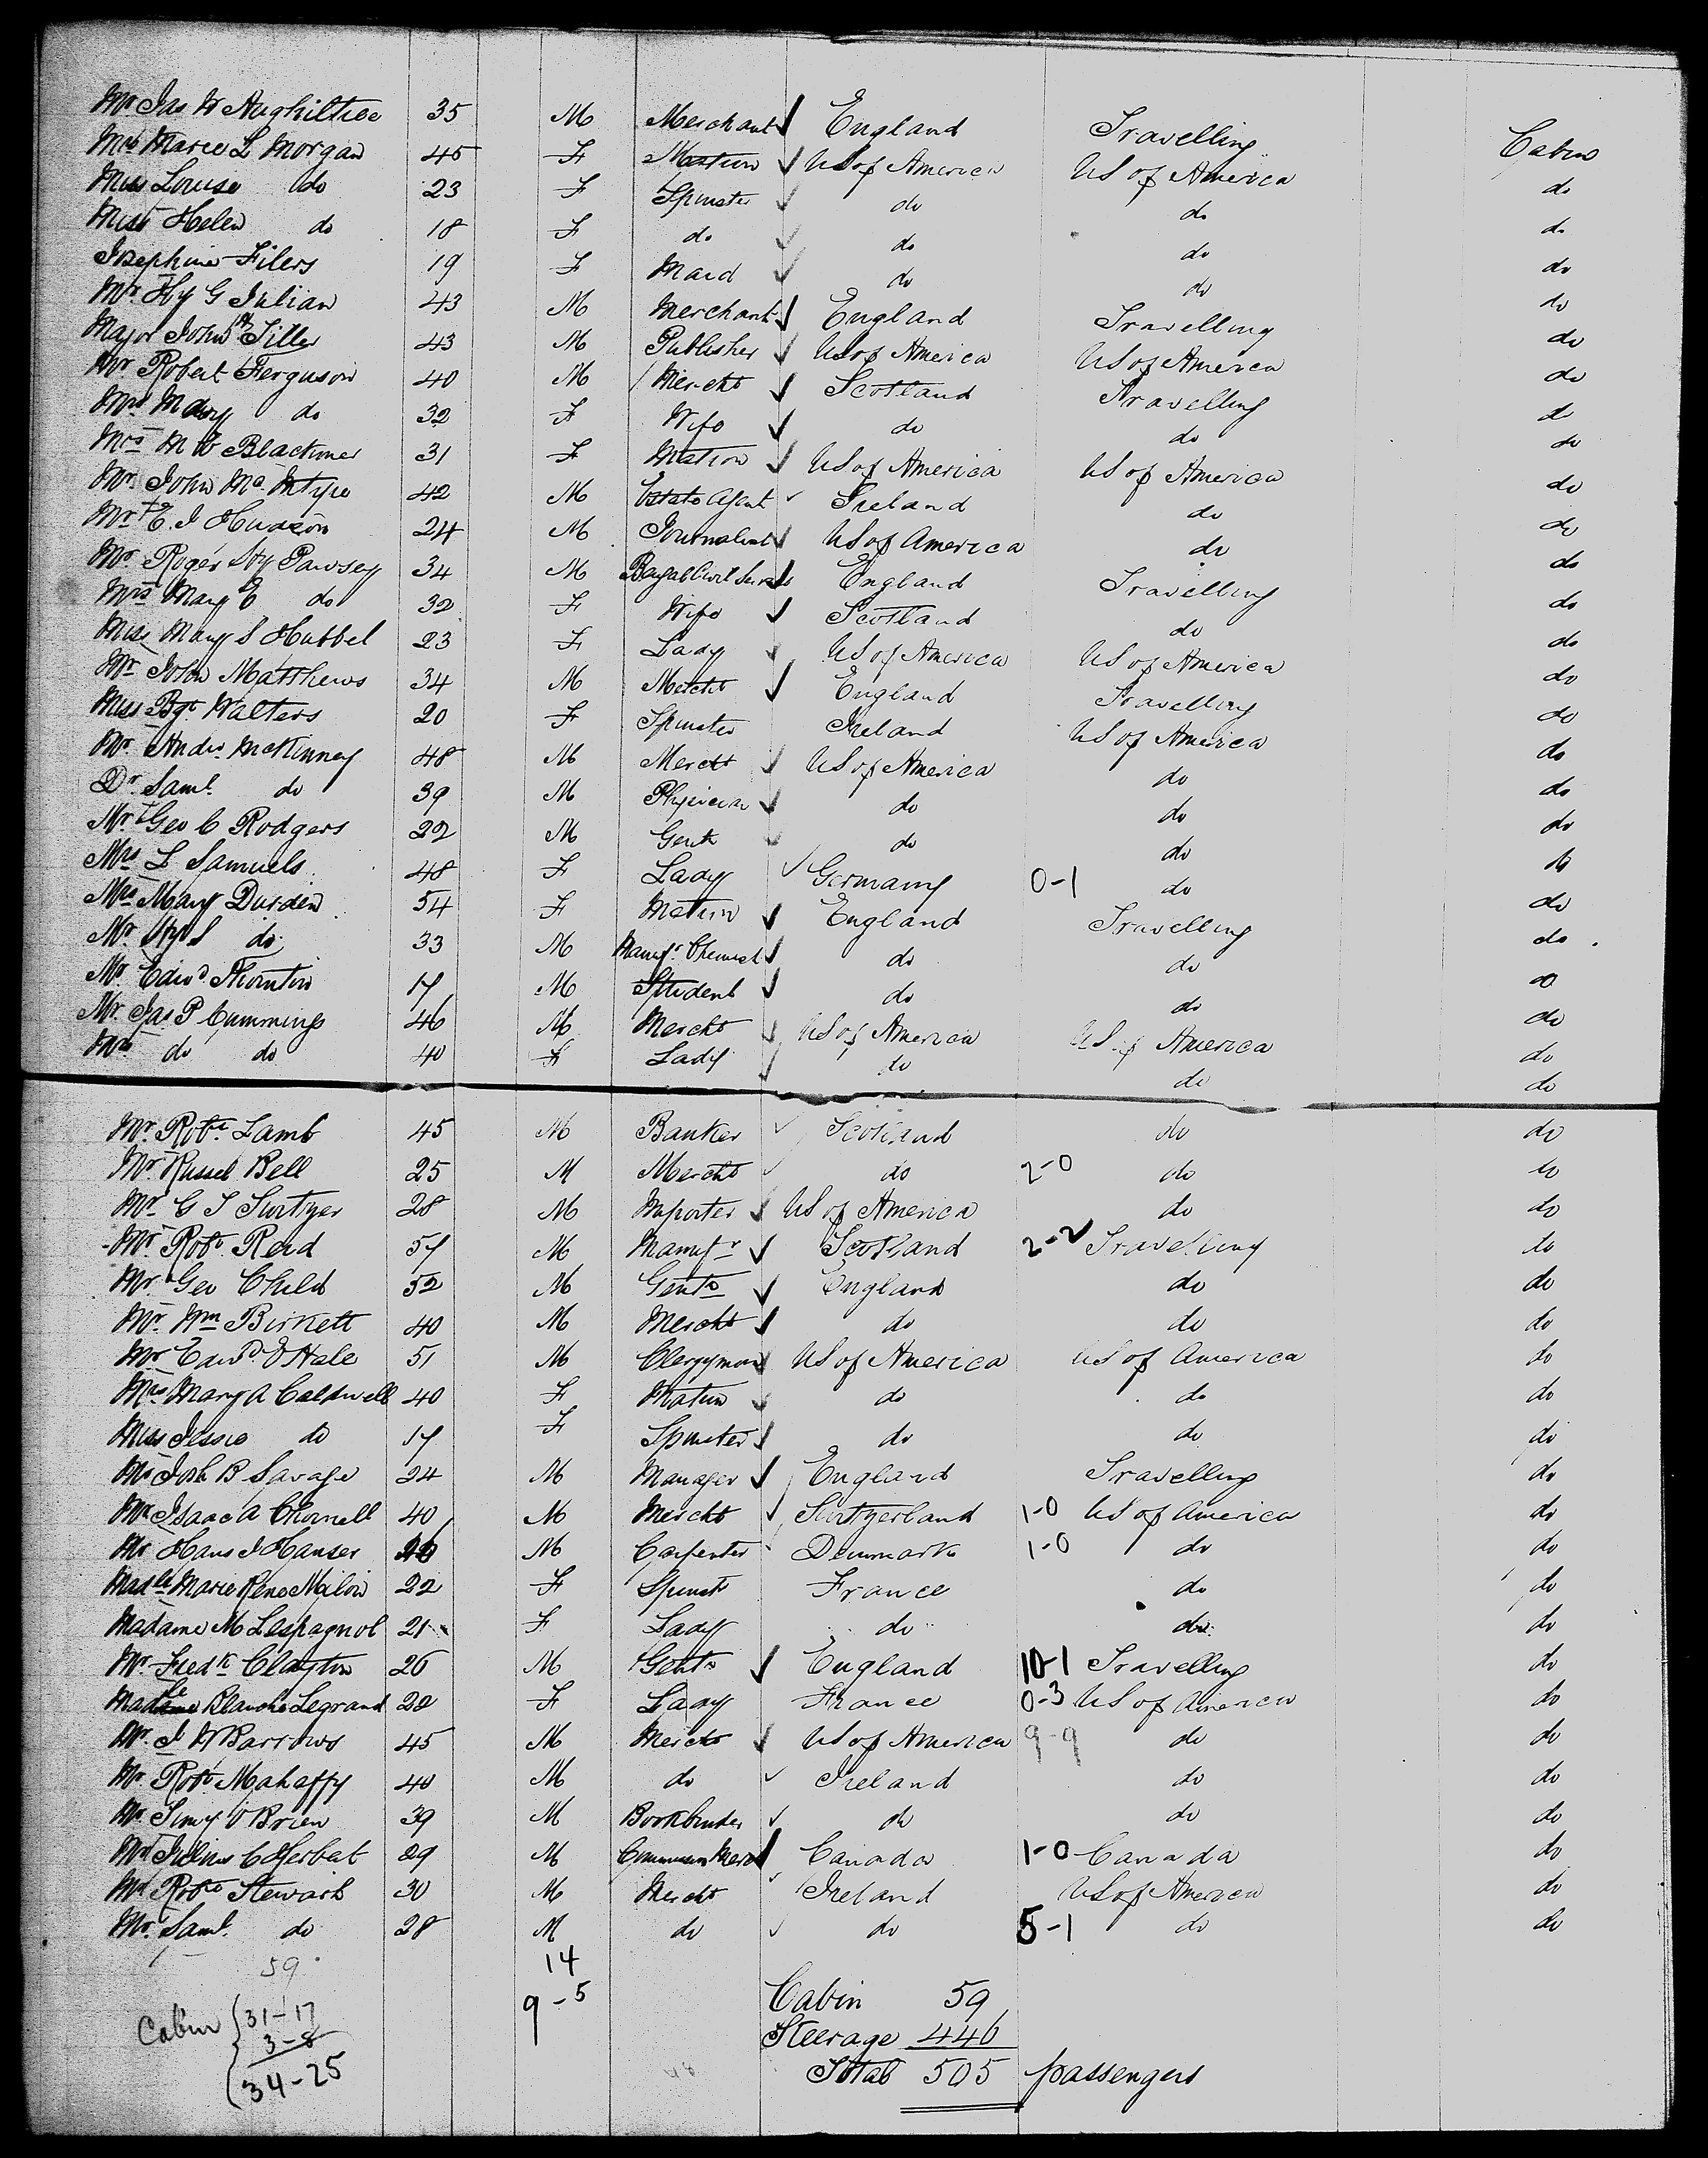 Mr Jas W Aughiltree 35 M Merchant England Travelling Cabin
Mrs Marie L Morgan 45 F Matron US of America US of America do
Miss Louise do 23 F Spinster do do do
Miss Helen do 18 F do do do do
Josephine Filers 19 F Maid do do do
Mr Hy G Julian 43 M Merchant England Travelling do
Major John Tiller 43 M Publisher US of America US of America do
Mr Robert Ferguson 40 M Mercht Scotland Travelling do
Mrs Mary do 32 F Wife do do do
Mrs M W Blackmer 31 F Matron US of America US of America do
Mr John Mc Intyre 42 M Estate Agent Ireland do do
Mr E. J Hudson 24 M Journalist US of America do do
Mr Roger Hy Pawsey 34 M Bengal Civil Servt England Travelling do
Mrs Mary E do 32 F Wife Scotland do do
Miss Mary S Hubbel 23 F Lady US of America US of America do
Mr John Matthews 34 M Mercht England Travelling do
Miss Bgt Walters 20 F Spinster Ireland US of America do
Mr Andw McKinney 48 M Mercht US of America do do
Dr Saml do 39 M Physician do do do
Mr Geo C Rodgers 22 M Gent do do do
Mrs L Samuels 48 F Lady Germany 0-1 do do
Mrs Mary Durden 54 F Matron England Travelling do
Mr Hy S do 33 M Manufr Chemist do do do
Mr Edwd Thornton 17 M Student do do do
Mr Jas P Cummings 46 M Mercht US of America US of America do
Mrs do do 40 F Lady do do do
Mr Robt Lamb 45 M Banker Scotland do do
Mr Russel Bell 25 M Mercht do 2-0 do do
Mr G T 28 M Importer US of America do do
Mr Robt Reid 57 M Manufr Scotland 2-2 Travelling do
Mr Geo Child 52 M Gent England do do
Mr Wm Birkett 40 M Mercht do do do
Mr Edwd E Hale 51 M Clergyman US of America US of America do
Mrs Mary A Caldwell 40 F Matron do do do
Miss Jessie do 17 F Spinster do do do
Mr Josh B Savage 24 M Manager England Travelling do
Mr Isaac A Chornell 40 M Mercht Switzerland 1-0 US of America do
Mr Hans J Hanser M Carpenter Denmark 1-0 do do
Madle Marie Rene Milon 22 F Spinst France do do
Madame M Lespagnol 21 F Lady do do do
Mr Fredk Clayton 26 M Gent England 10-1 Travelling do
Madle Blanche Legrand 22 F Lady France 0-3 US of America do
Mr J W Barrows 45 M Mercht US of America 9-9 do do
Mr Robt Mahaffy 40 M do Ireland do do
Mr Timy O'Brien 39 M Bookbinder do do do
Mr Julius C Herbert 29 M Commission Merct Canada 1-0 Canada do
Mr Robt Stewart 30 M Mercht Ireland US of America do
Mr Saml do 28 M do do 5-1 do do
59 14
9-5
Cabin 31-17
3-8
34-25
Cabin 59
Steerage 446
Total 505 passengers